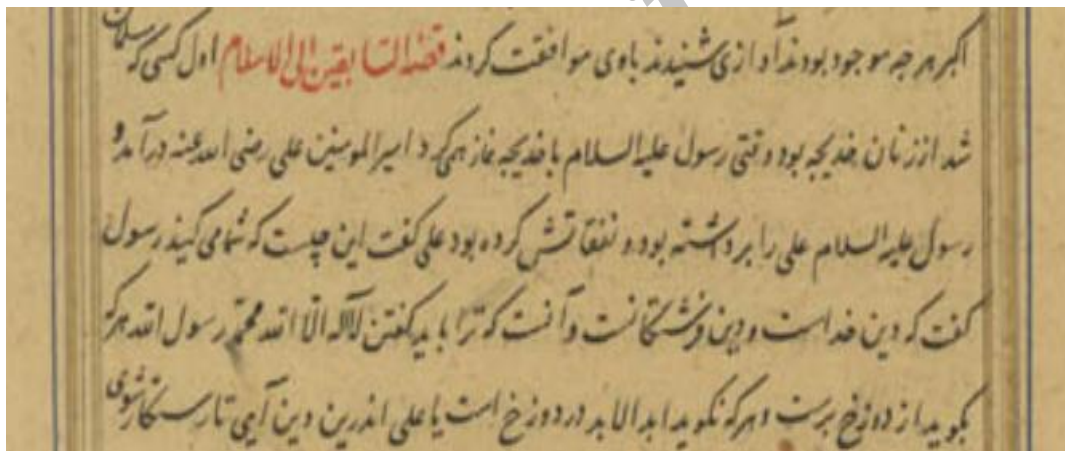 اکبر هر چه موجود بودند آوازی شنیدند باوی موافقت کردند قصه السابقین الی الاسلام اول کسی که مسلمان
شد از زنان خدیجه بود وقتی رسول علیه السلام با خدیجه نماز همی کرد امیر المومنین علی رضی الله عنه در آمد و
رسول علیه السلام علی را برداشته بود و نفقاتش کرده بود علی گفت این چیست که شما می کنید رسول
گفت که دین خداست و دین فرشتگانست و آنست که ترا باید گفتن لا اله الا الله محمد رسول الله هر که
بگوید از دوزخ برست و هر که نگوید ابد الابد در دوزخ است یا علی اندرین دین آیی تا رستگار شوی